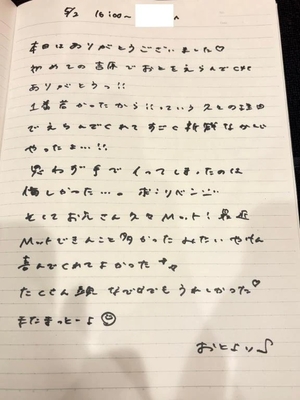 5/2 16:00〜
本日はありがとうございました♡
初めての吉原でおとをえらんでくれて
ありがとうっ!!
1番若かったから!っていう久との理由
でえらんでくれてすごく新鮮なかんじ
やったよ…!!
思わず手でイってしまったのは
悔しかった…。求:リベンジ
そしてお兄さん久々Mット! 最近
Mットできんこと多かったみたいやけん
喜んでくれてよかった
たくさん頭なでなでもうれしかった♡
またまっとーよ☺
おとより♪